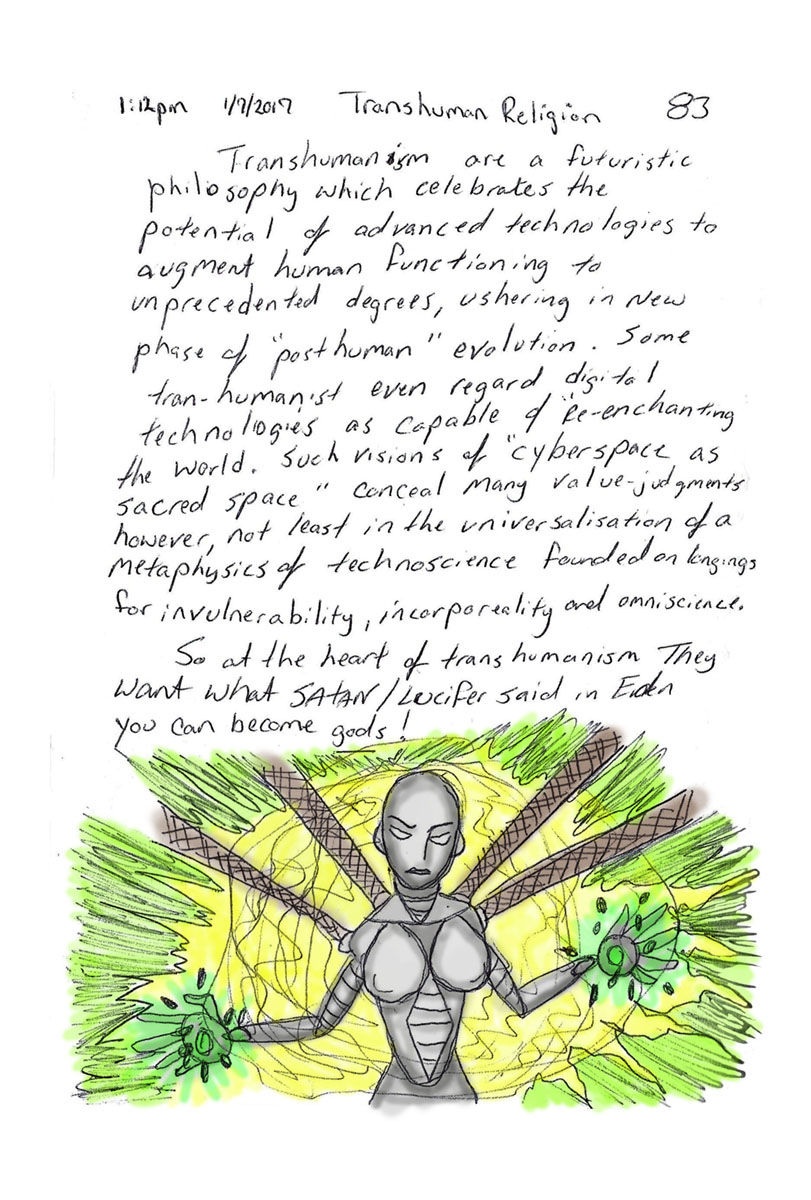 1:12pm 1/7/2017 Transhuman Religion 83
Transhumanism are a futuristic
philosophy which celebrates the
potential of advanced technologies to
augment human functioning to
unprecedented degrees, ushering in New
phase of "posthuman" evolution. Some
tran-humanist even regard digital
technologies as capable of "Re-enchanting
the world. Such visions of "cyberspace as
sacred space" conceal many value-judgments
however, not least in the universalisation of a
metaphysics of technoscience founded on longings
for invulnerability, incorporeality and omniscience.
So at the heart of transhumanism They
want what SATAN/Lucifer said in Eden
you can become gods!